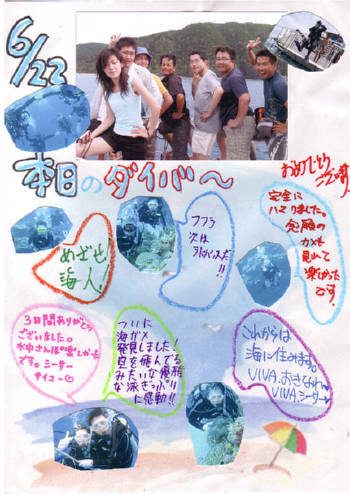 6/22
おめでとう
ございます
本日のダイバ〜
完全に
ハマりました。
念願の
カメも
見れて
楽しかった
です。
フフフ
次は
!!
めざせ
海人!
3日間ありがとう
ございました。
水中さんぽ
楽しかった
です。シーサー
サイコー
ついに
海ガメ
発見しました!
空を飛んでる
みたいな優雅
な泳ぎっぷり
に感動!!
これからは
海に住みます。
VIVA.おきなわ
VIVA.シーサー